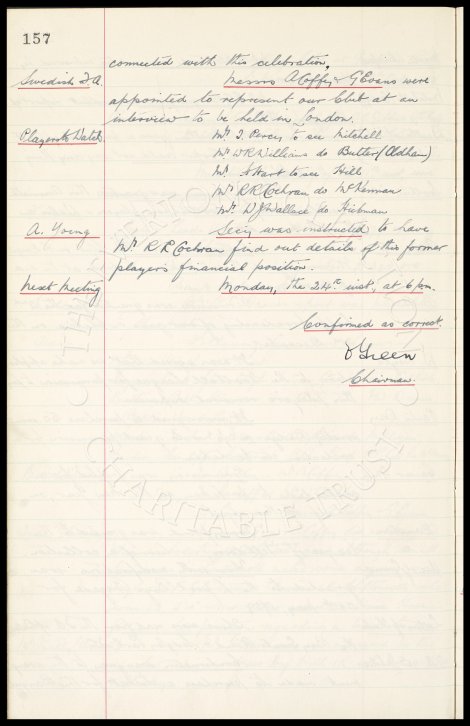 157
connected with this celebration.
Swedish F.A. Messrs A Coffey & G Evans were
appointed to represent our Club at an
interview to be held in London.
Players to Watch. Mr. J. Percy to see Mitchell
Mr. W R Williams do Butler (Oldham)
Mr. A Hart to see Hill
Mr. R R Cochran do McKennan
Mr. W J Wallace do Hibman
A. Young Secy was instructed to have
Mr. R R Cochran find out details of this former
players financial position.
Next Meeting Monday, the 24th inst, at 6 pm.
Confirmed as correct.
Green
Chairman.
CHARITABLE TRUST